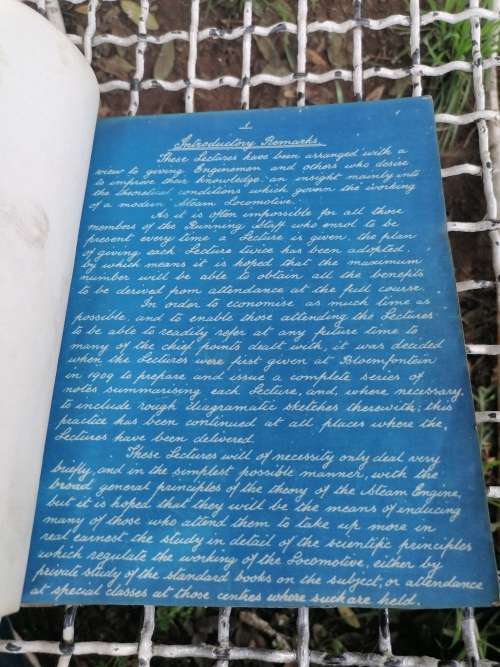 1
Introductory Remarks.
These Lectures have been arranged with a
view to giving Enginemen and others who desire
to improve their knowledge an insight mainly into
the theoretical conditions which govern the working
of a modern "Steam Locomotive".
As it is often impossible for all those
members of the Running Staff who enrol to be
present every time a Lecture is given, the plan
of giving each Lecture twice has been adopted,
by which means it is hoped that the maximum
number will be able to obtain all the benefits
to be derived from attendance at the full course.
In order to economise as much time as
possible, and to enable those attending the Lectures
to be able to readily refer at any future time to
many of the chief points dealt with, it was decided
when the Lectures were first given at Bloemfontein
in 1909 to prepare and issue a complete series of
notes summarising each Lecture, and, where necessary,
to include rough diagramatic sketches therewith; this
practice has been continued at all places where the
Lectures have been delivered.
These Lectures will of necessity only deal very
briefly, and in the simplest possible manner, with the
broad general principles of the theory of the Steam Engine,
but it is hoped that they will be the means of inducing
many of those who attend them to take up more in
real earnest the study in detail of the scientific principles
which regulate the working of the Locomotive, either by
private study of the standard books on the subject, or attendance
at special classes at those centres where such are held.